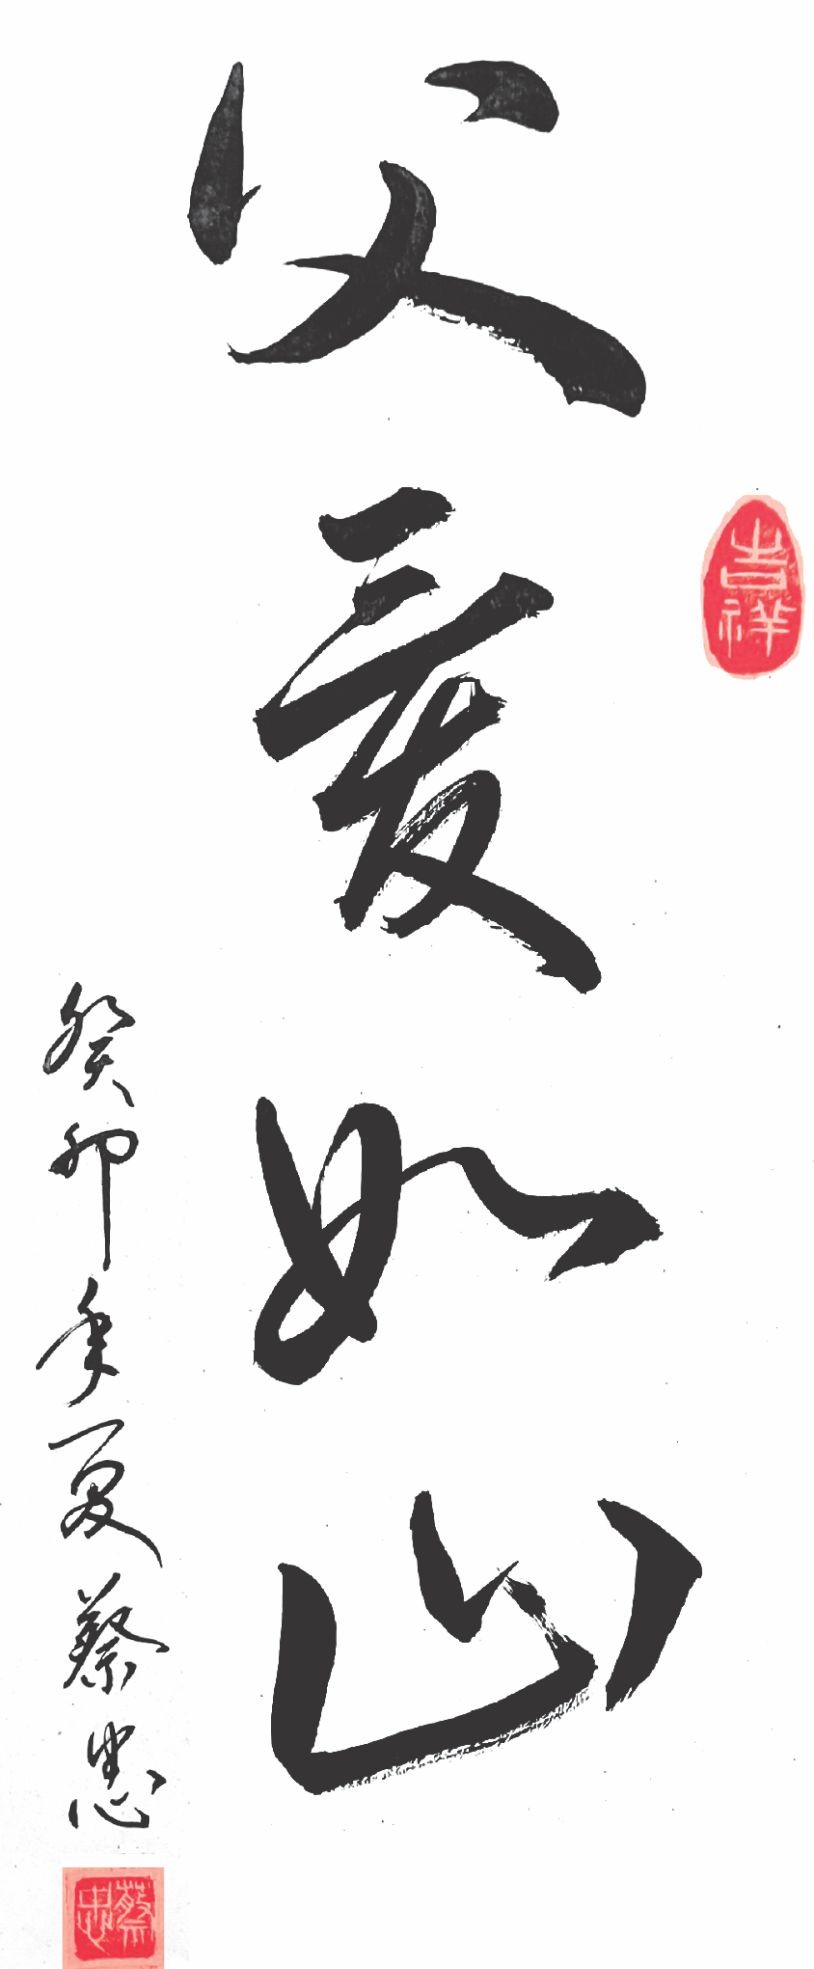 父爱如山
吉祥
癸卯年夏蔡忠
蔡忠